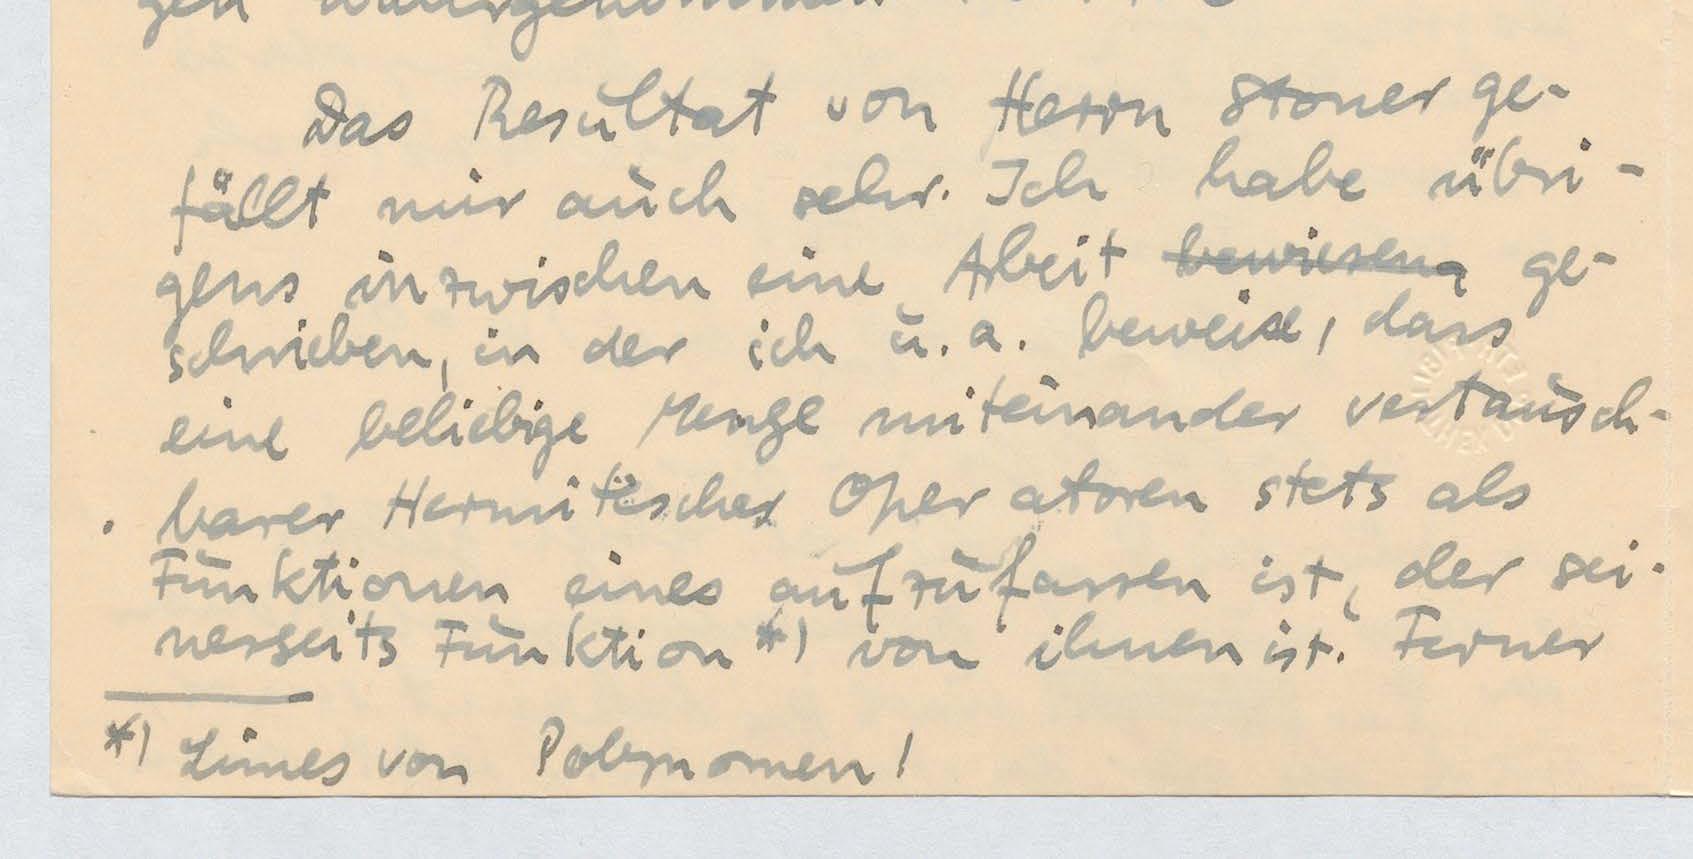 gen wahrgenommen
Das Resultat von Herrn Stoner ge-
fällt mir auch sehr. Ich habe übri-
gens inzwischen eine Arbeit bewiesen, ge-
schrieben, in der ich u. a. beweise, dass
eine beliebige Menge miteinander vertausch-
barer Hermitescher Operatoren stets als
Funktionen eines aufzufassen ist, der sei-
nerseits Funktion *) von ihnen ist. Ferner
*) Limes von Polynomen!